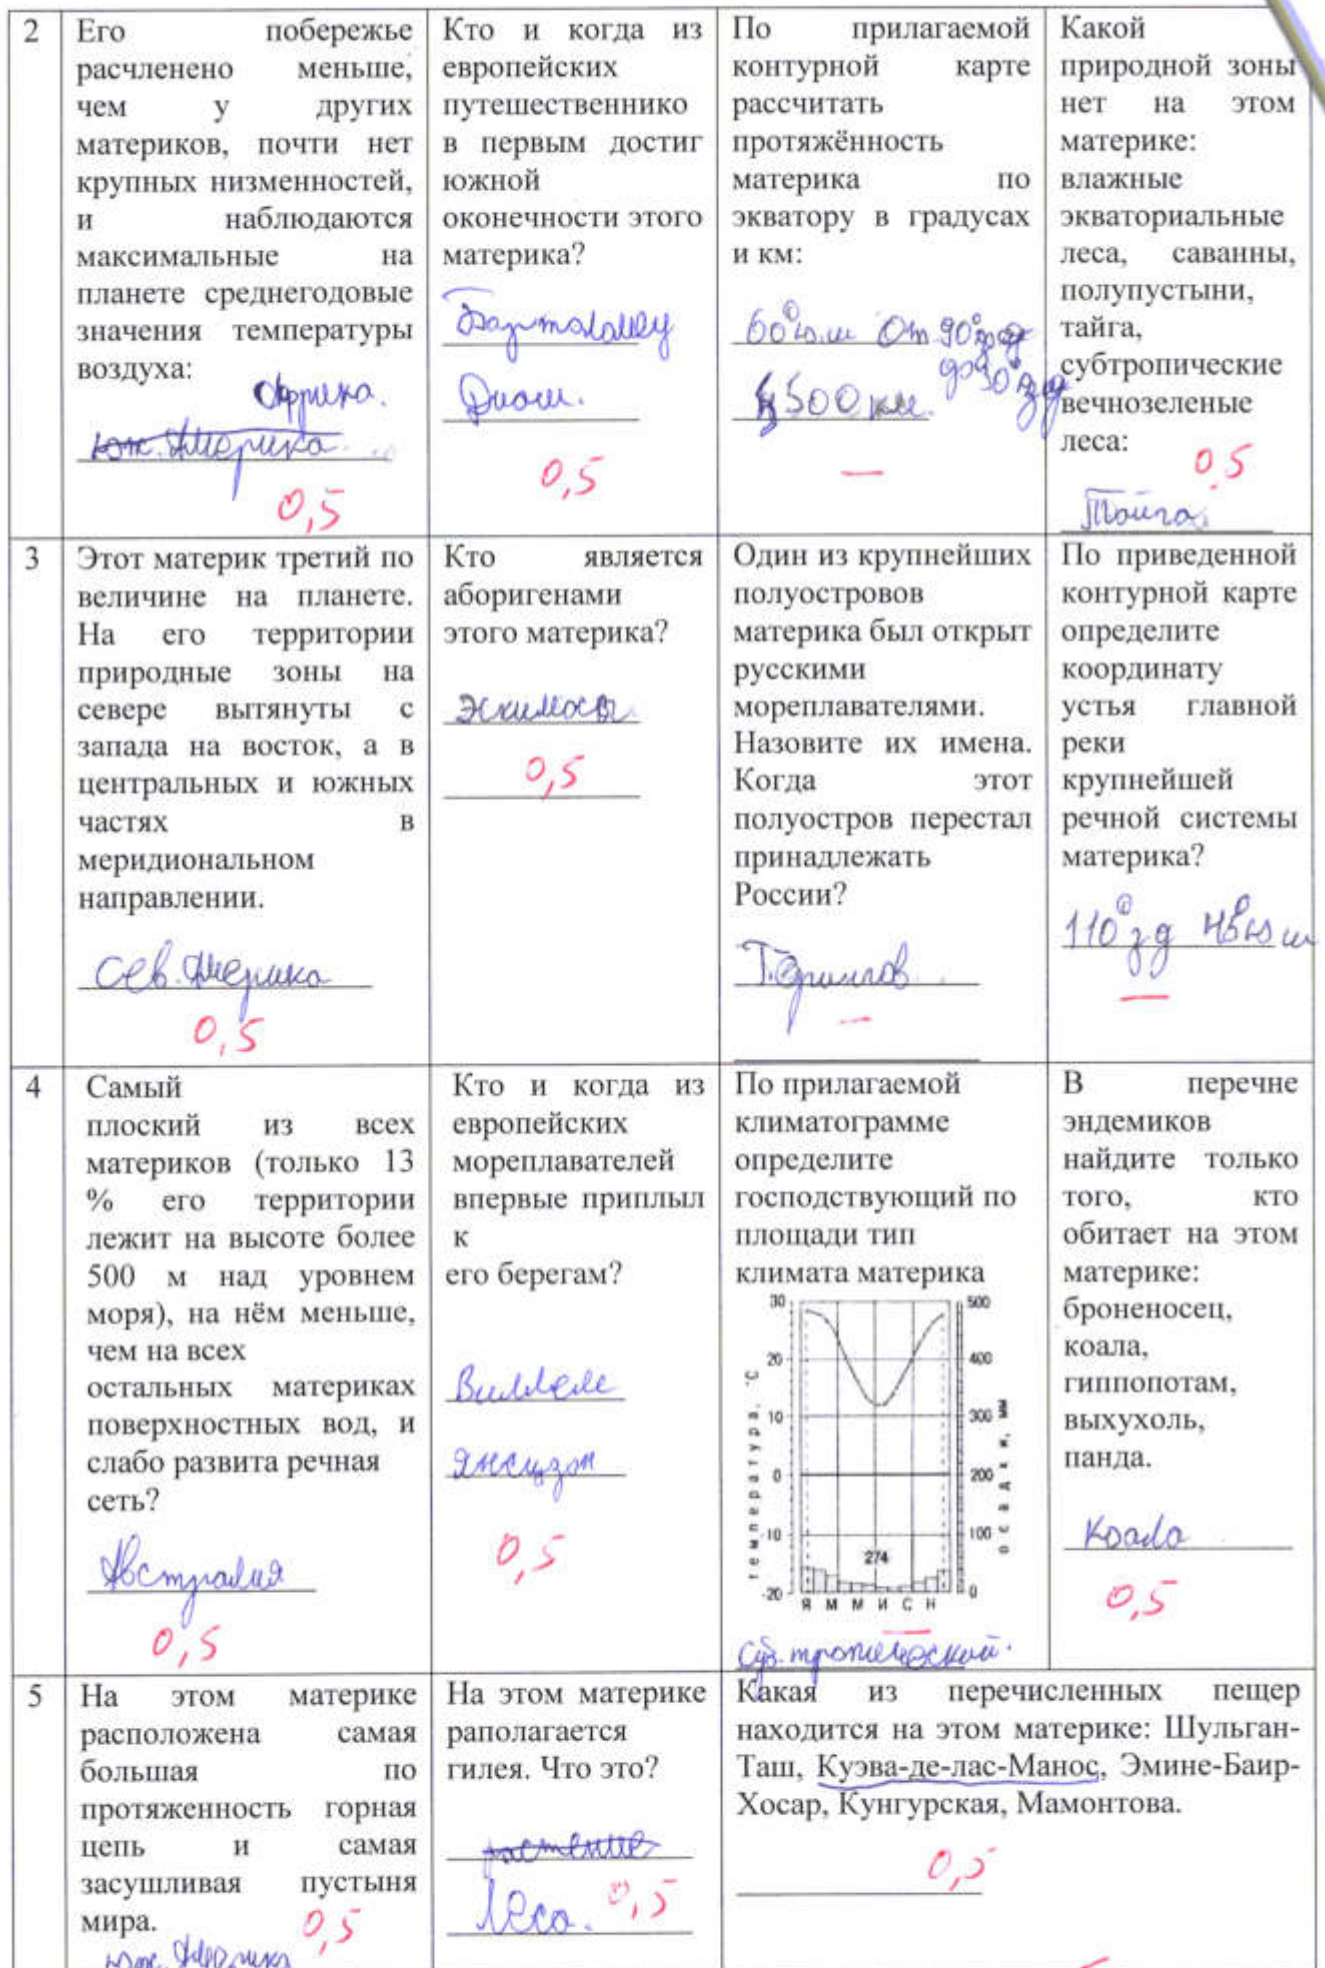 2
Его побережье
расчленено меньше,
чем у других
материков, почти нет
крупных низменностей,
и наблюдаются
максимальные на
планете среднегодовые
значения температуры
воздуха:
Африка.
Юж. Америка
0,5
Кто и когда из
европейских
путешественнико
в первым достиг
южной
оконечности этого
материка?
Бартоломеу
Диаш.
0,5
По прилагаемой
контурной карте
рассчитать
протяжённость
материка по
экватору в градусах
и км:
60° ю.ш От 90°
до 30° зд
500 км.
—
Какой
природной зоны
нет на этом
материке:
влажные
экваториальные
леса, саванны,
полупустыни,
тайга,
субтропические
вечнозеленые
леса:
0,5
Тайга
3
Этот материк третий по
величине на планете.
На его территории
природные зоны на
севере вытянуты с
запада на восток, а в
центральных и южных
частях в
меридиональном
направлении.
Сев. Америка
0,5
Кто является
аборигенами
этого материка?
Эскимосы
0,5
Один из крупнейших
полуостровов
материка был открыт
русскими
мореплавателями.
Назовите их имена.
Когда этот
полуостров перестал
принадлежать
России?
—
По приведенной
контурной карте
определите
координату
устья главной
реки
крупнейшей
речной системы
материка?
110° зд ю ш
—
4
Самый
плоский из всех
материков (только 13
% его территории
лежит на высоте более
500 м над уровнем
моря), на нём меньше,
чем на всех
остальных материках
поверхностных вод, и
слабо развита речная
сеть?
Австралия
0,5
Кто и когда из
европейских
мореплавателей
впервые приплыл
к
его берегам?
Виллем
Янсцзон
0,5
По прилагаемой
климатограмме
определите
господствующий по
площади тип
климата материка
30 500
20 400
10 300
0 200
-10 100
-20 0
температура, °C
осадки, мм
274
Я М М И С Н
—
Субтропический.
В перечне
эндемиков
найдите только
того, кто
обитает на этом
материке:
броненосец,
коала,
гиппопотам,
выхухоль,
панда.
Коала
0,5
5
На этом материке
расположена самая
большая по
протяженность горная
цепь и самая
засушливая пустыня
мира.
0,5
Юж. Америка
На этом материке
раполагается
гилея. Что это?
растение
Леса.
0,5
Какая из перечисленных пещер
находится на этом материке: Шульган-
Таш, Куэва-де-лас-Манос, Эмине-Баир-
Хосар, Кунгурская, Мамонтова.
0,5